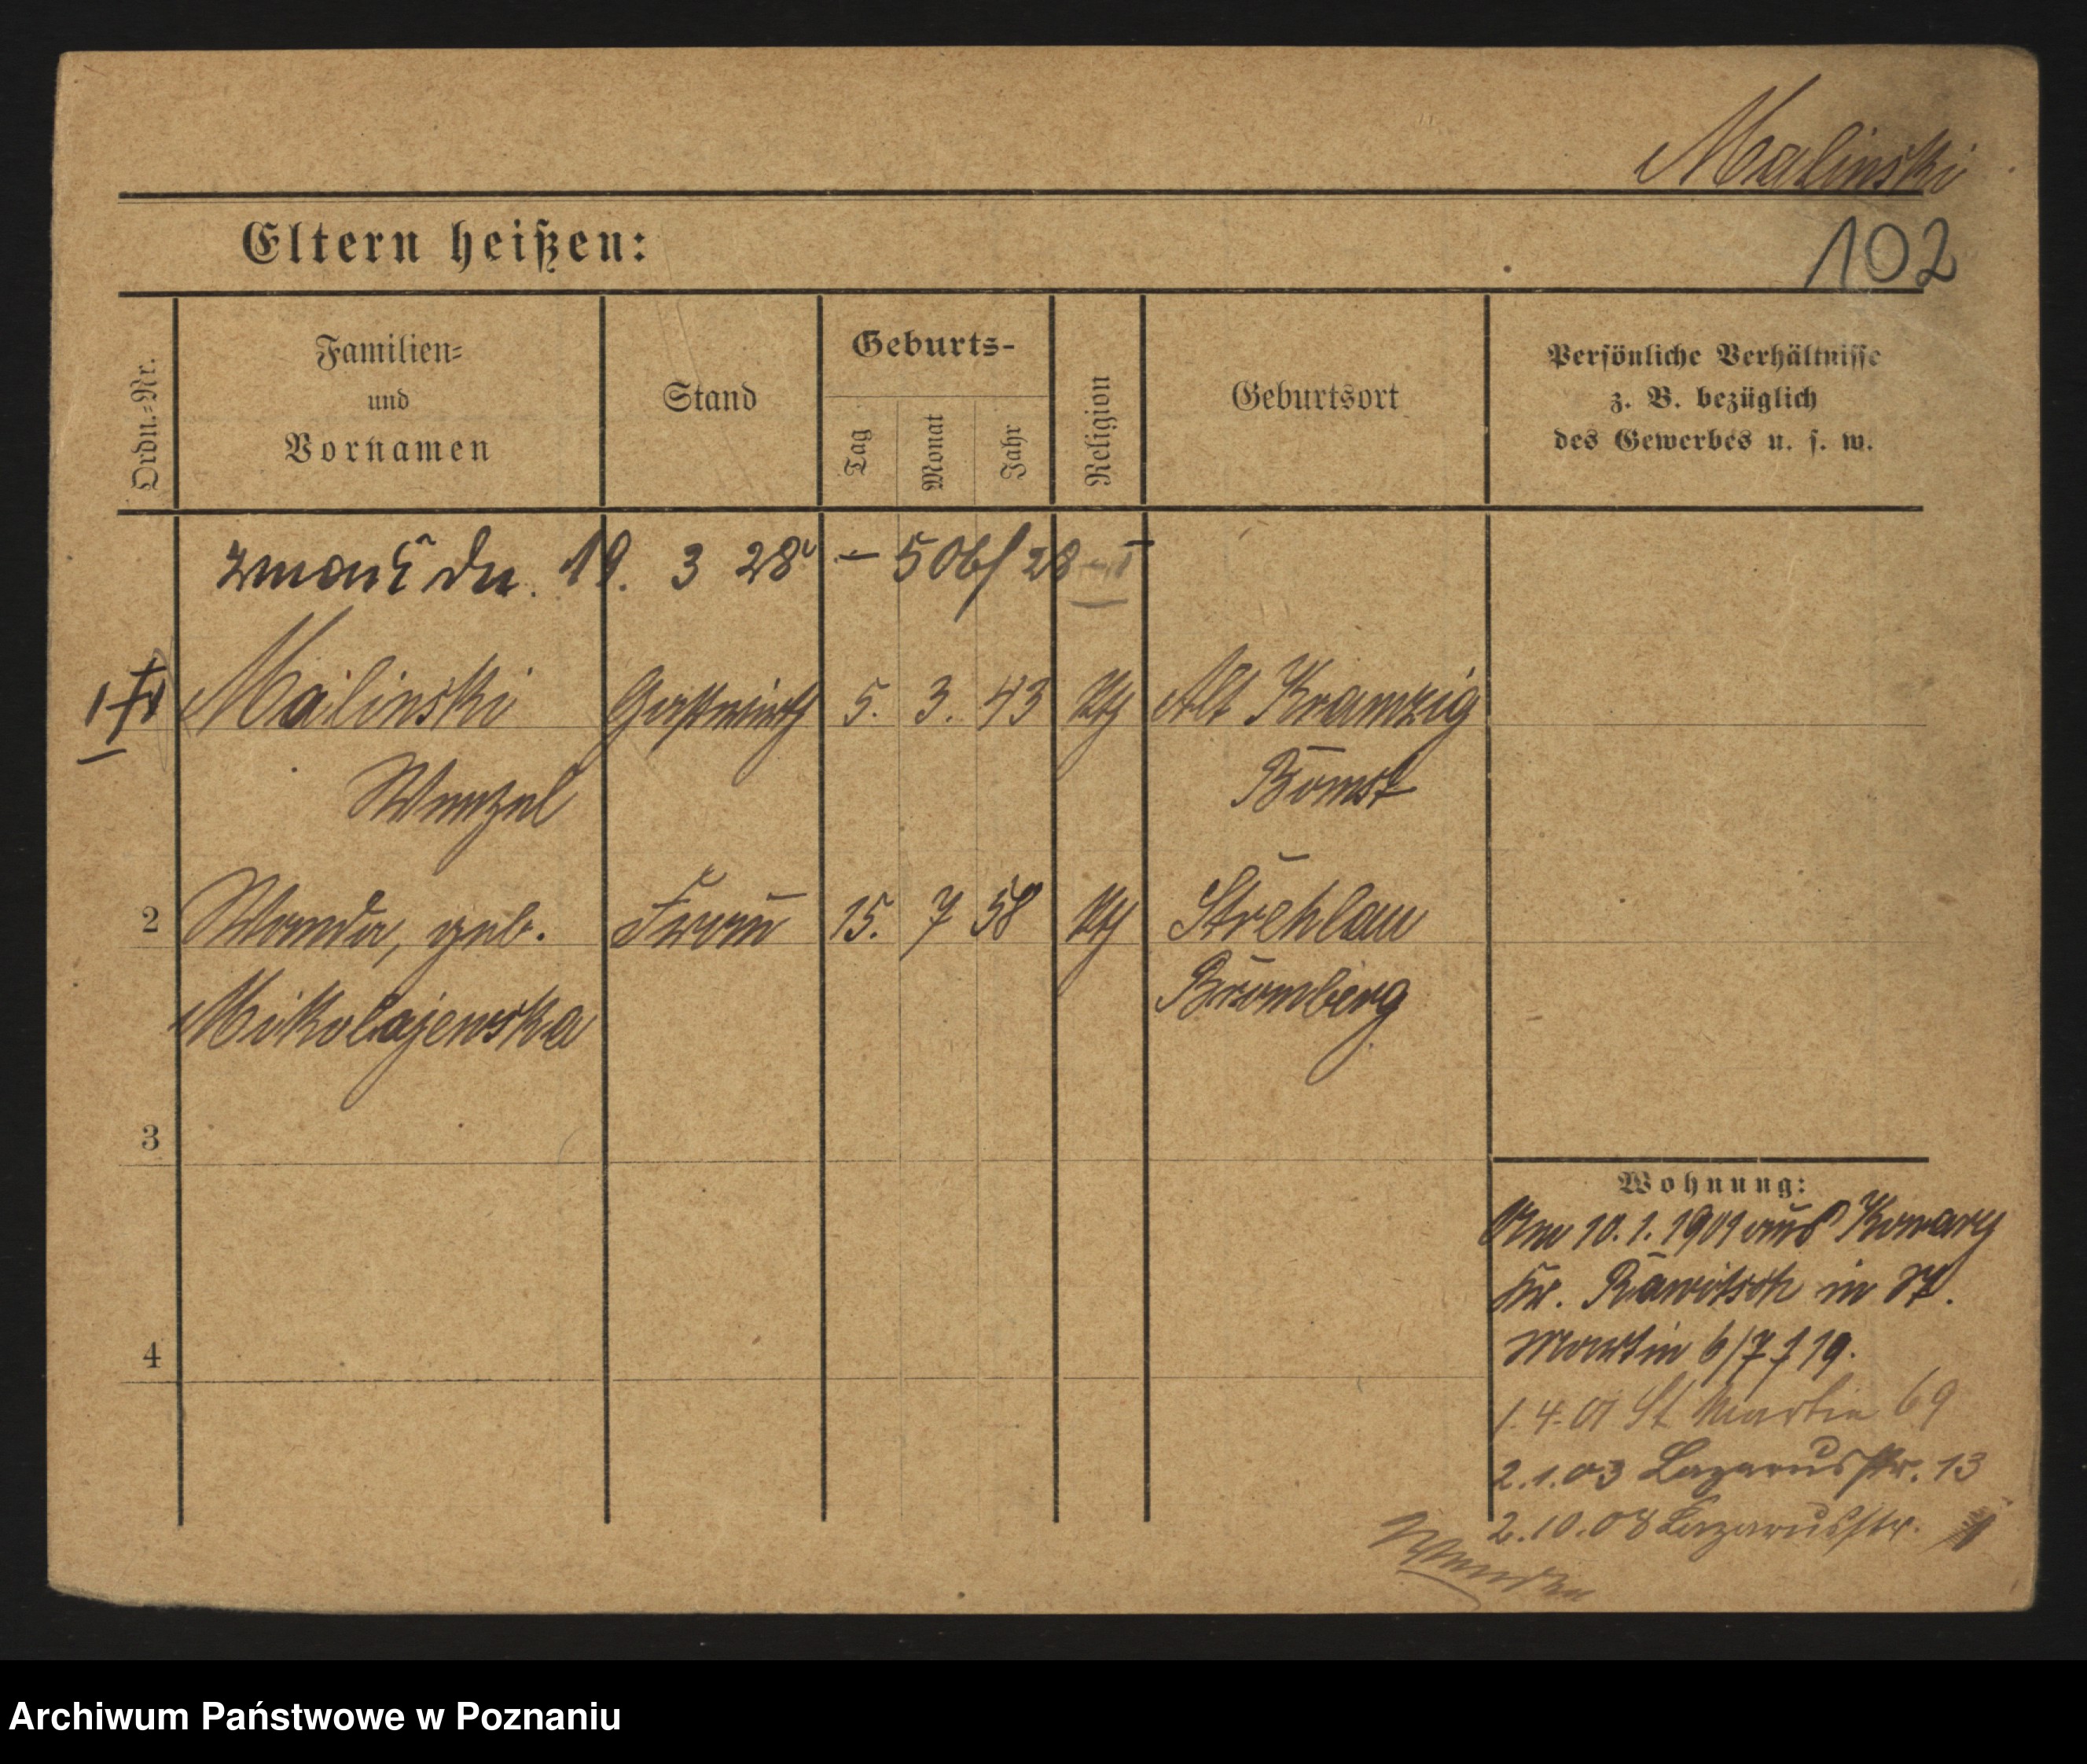 Malinski
102
Eltern heißen:
Ordn.-Nr.
Familien-
und
Vornamen
Stand
Geburts-
Tag
Monat
Jahr
Religion
Geburtsort
Persönliche Verhältnisse
z. B. bezüglich
des Gewerbes u. s. w.
zmarł dn. 19. 3 28 r – 506/28
1 Malinski Gastwirth 5. 3. 43 kth Alt Kramzig
Wenzel Bomst
2 Wanda, geb. Frau 15. 7 58 kth Strehlau
Mikolajewska Bromberg
3
4
Wohnung:
Am 10.1.1901 aus Kowary
Kr. Rawitsch in St.
Martin 6/7
1.4.01 St Martin 69
2.1.03 Lazarusstr. 13
2.10.08 Lazarusstr.
Wenden
Archiwum Państwowe w Poznaniu